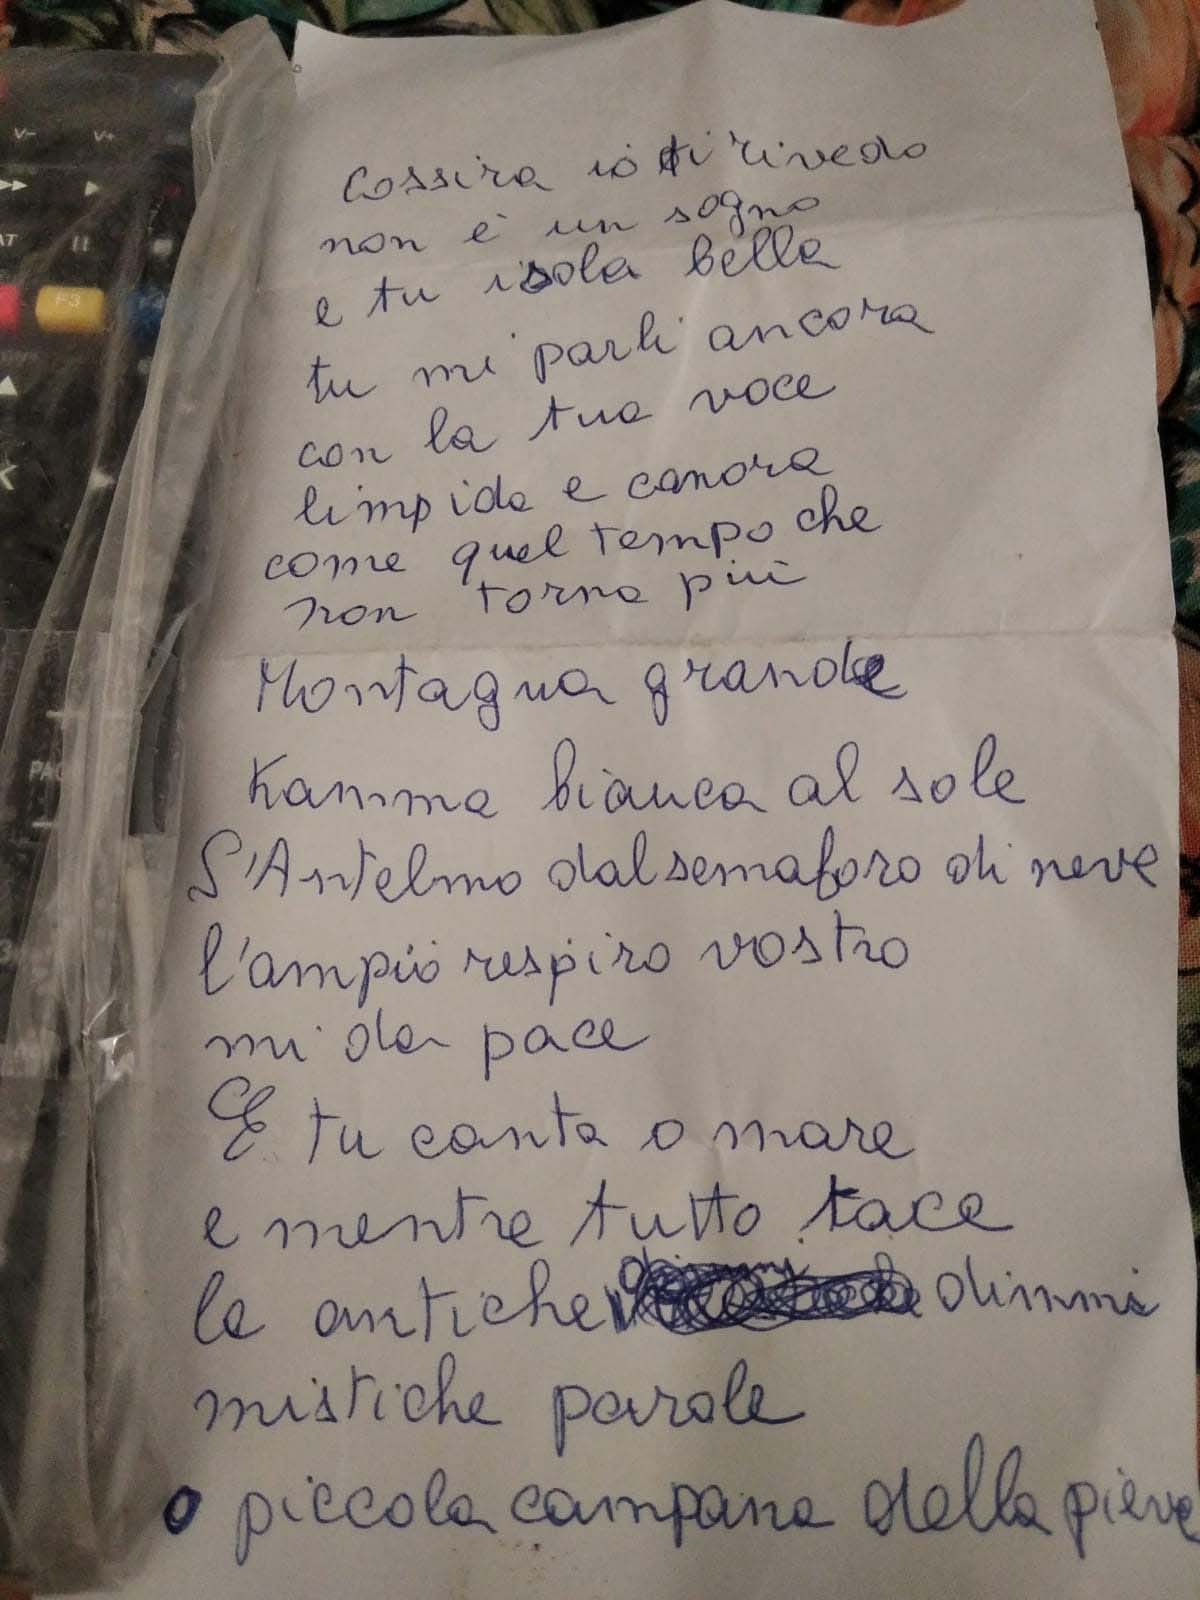 V- V+
F3
Cossira io ti rivedo
non è un sogno
e tu isola bella
tu mi parli ancora
con la tua voce
limpida e canora
come quel tempo che
non torna più
Montagna grande
Kamma bianca al sole
S'Antelmo dal semaforo di neve
l'ampio respiro vostro
mi da pace
E tu canta o mare
e mentre tutto tace
le antiche dimmi
mistiche parole
o piccola campana della pieve